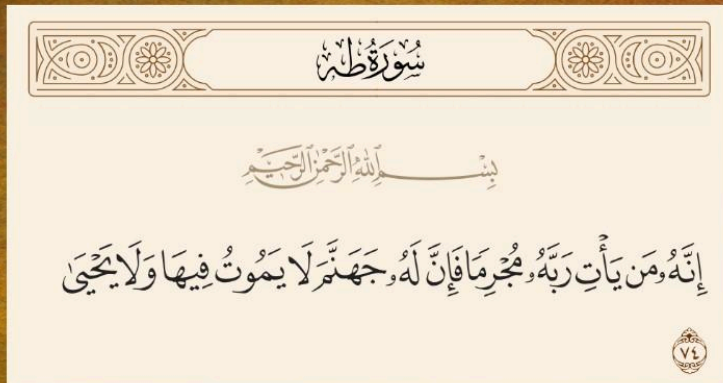 سُورَةُ طه
بِسْمِ ٱللَّهِ ٱلرَّحْمَٰنِ ٱلرَّحِيمِ
إِنَّهُۥ مَن يَأْتِ رَبَّهُۥ مُجْرِمًا فَإِنَّ لَهُۥ جَهَنَّمَ لَا يَمُوتُ فِيهَا وَلَا يَحْيَىٰ
٧٤